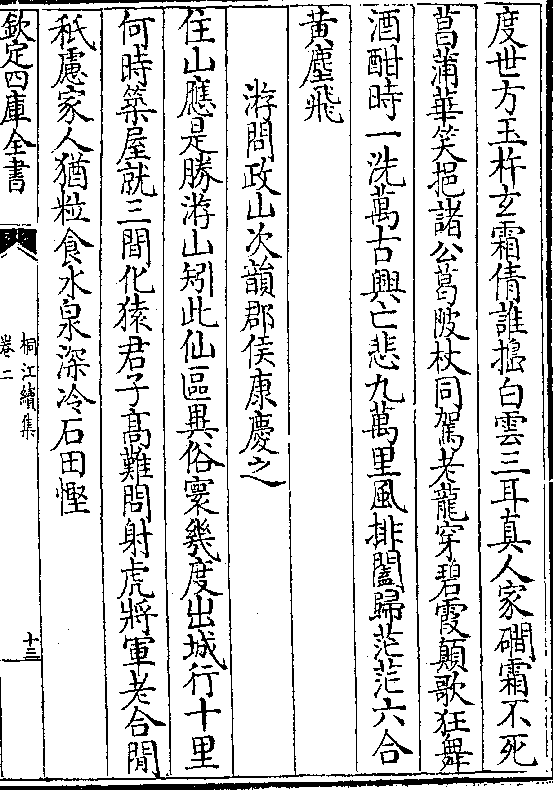 度世方玉杵玄霜倩誰搗白雲三耳真人家磵霜不死
菖蒲華笑挹諸公葛陂杖同駕老龍穿碧霞顛歌狂舞
酒酣時一洗萬古興亡悲九萬里風排闔歸茫茫六合
黄塵飛
游問政山次韻郡侯康慶之
住山應是勝游山矧此仙區異俗寰幾度出城行十里
何時築屋就三間化猿君子髙難問射虎將軍老合閒
秖慮家人猶粒食水泉深冷石田慳
欽定四庫全書
桐江續集
卷二
十三